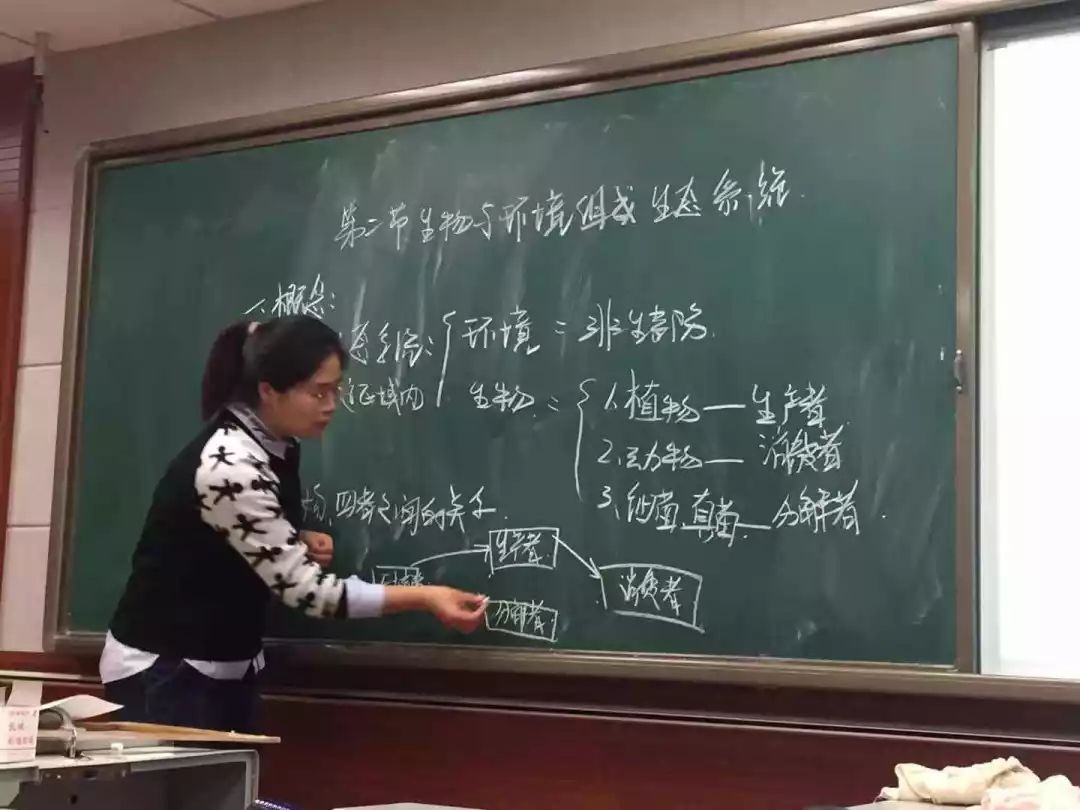 第二节 生物与环境组成生态系统
一、概念:
态系统: { 环境 = 非生物
区域内 生物 = { 1.植物 — 生产者
2.动物 — 消费者
3.细菌、真菌 — 分解者
四者之间的关系
生产者
消费者
分解者